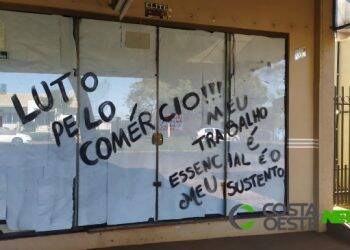 ELITE
LUTO
PELO
COMÉRCIO!!!
MEU
TRABALHO
É
ESSENCIAL É O
MEU SUSTENTO
COSTA
OESTE NEWS